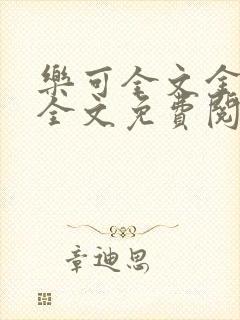 樂可全文全
全文免費閱
章迪思